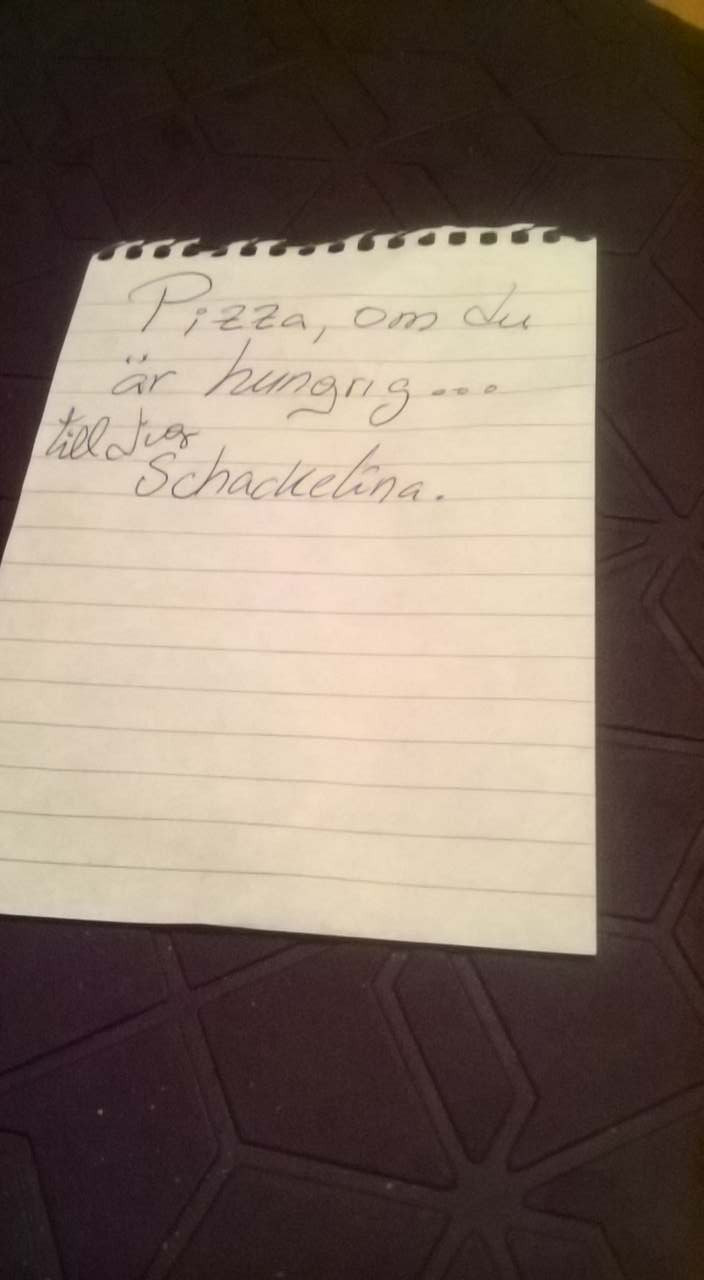 Pizza, om du
är hungrig...
till
Schackelina.